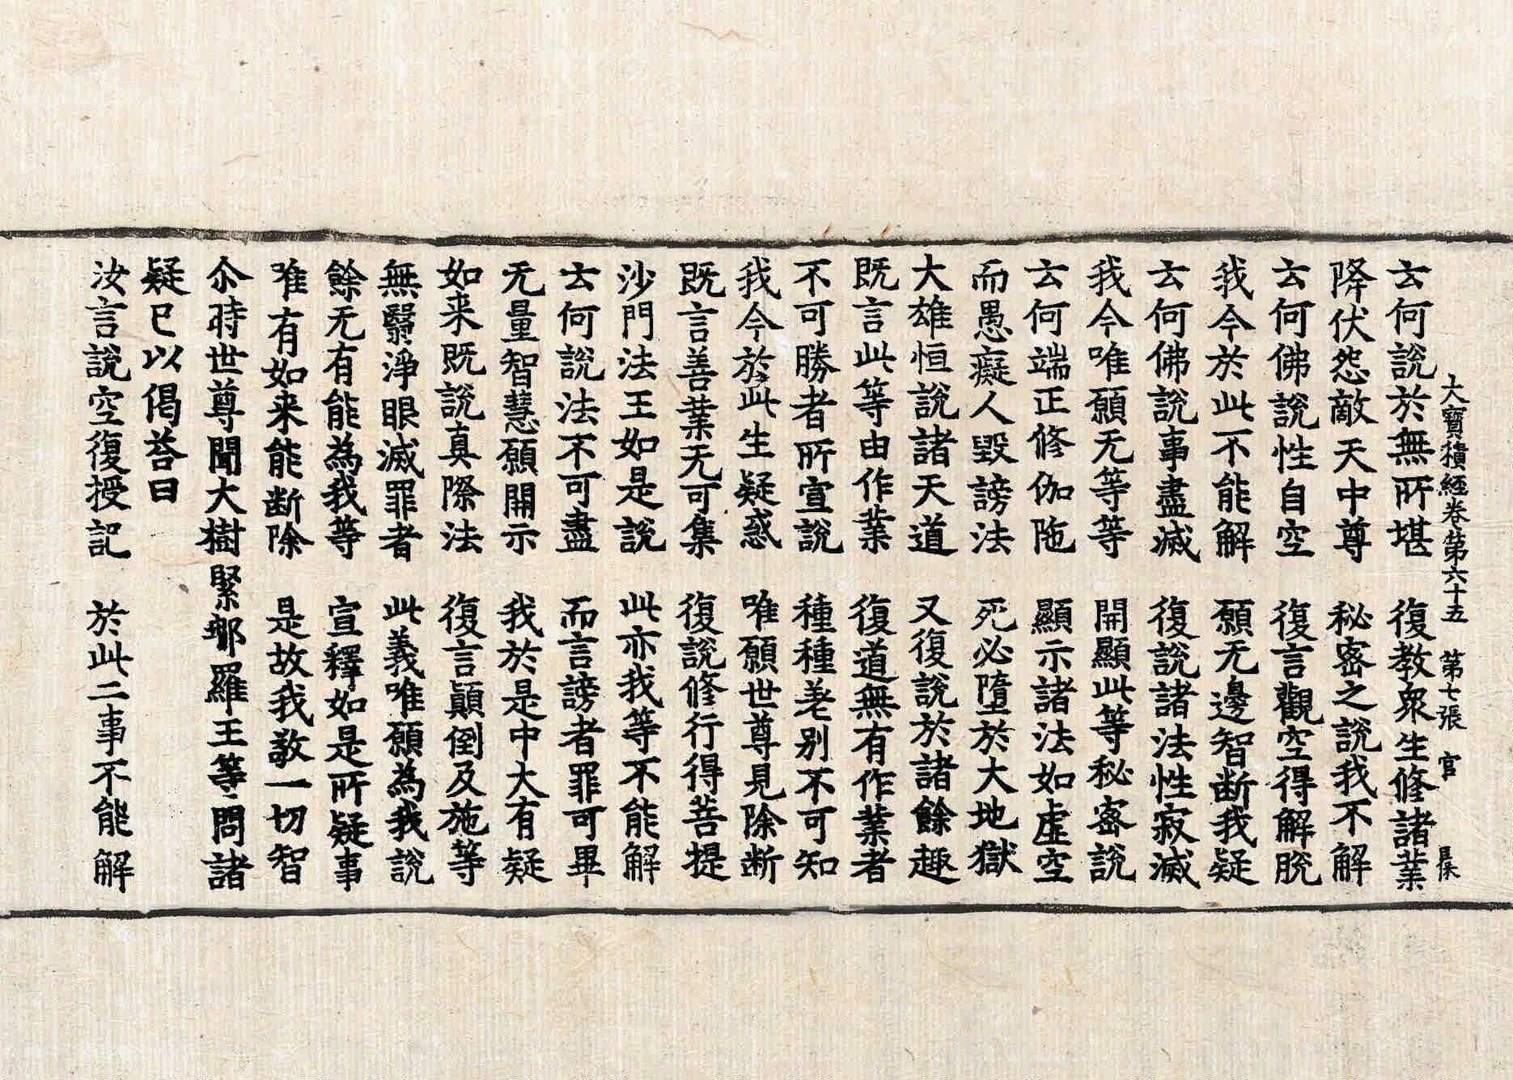 大寶積經卷第六十五 第七張 官
云何說於無所堪 復教衆生修諸業
降伏怨敵天中尊 秘密之說我不解
云何佛說性自空 復言觀空得解脫
我今於此不能解 願无邊智断我疑
云何佛說事盡滅 復說諸法性寂滅
我今唯願无等等 開顯此等秘密說
云何端正修伽陁 顯示諸法如虛空
而愚癡人毀謗法 死必墮於大地獄
大雄恒說諸天道 又復說於諸餘趣
既言此等由作業 復道無有作業者
不可勝者所宣說 種種差別不可知
我今於此生疑惑 唯願世尊見除断
既言善業无可集 復說修行得菩提
沙門法王如是說 此亦我等不能解
云何說法不可盡 而言謗者罪可畢
无量智慧願開示 我於是中大有疑
如来既說真際法 復言顚倒及施等
無翳淨眼滅罪者 此義唯願為我說
餘无有能為我等 宣釋如是所疑事
唯有如来能断除 是故我敬一切智
尒時世尊聞大樹緊那羅王等問諸
疑已以偈荅曰
汝言說空復授記 於此二事不能解